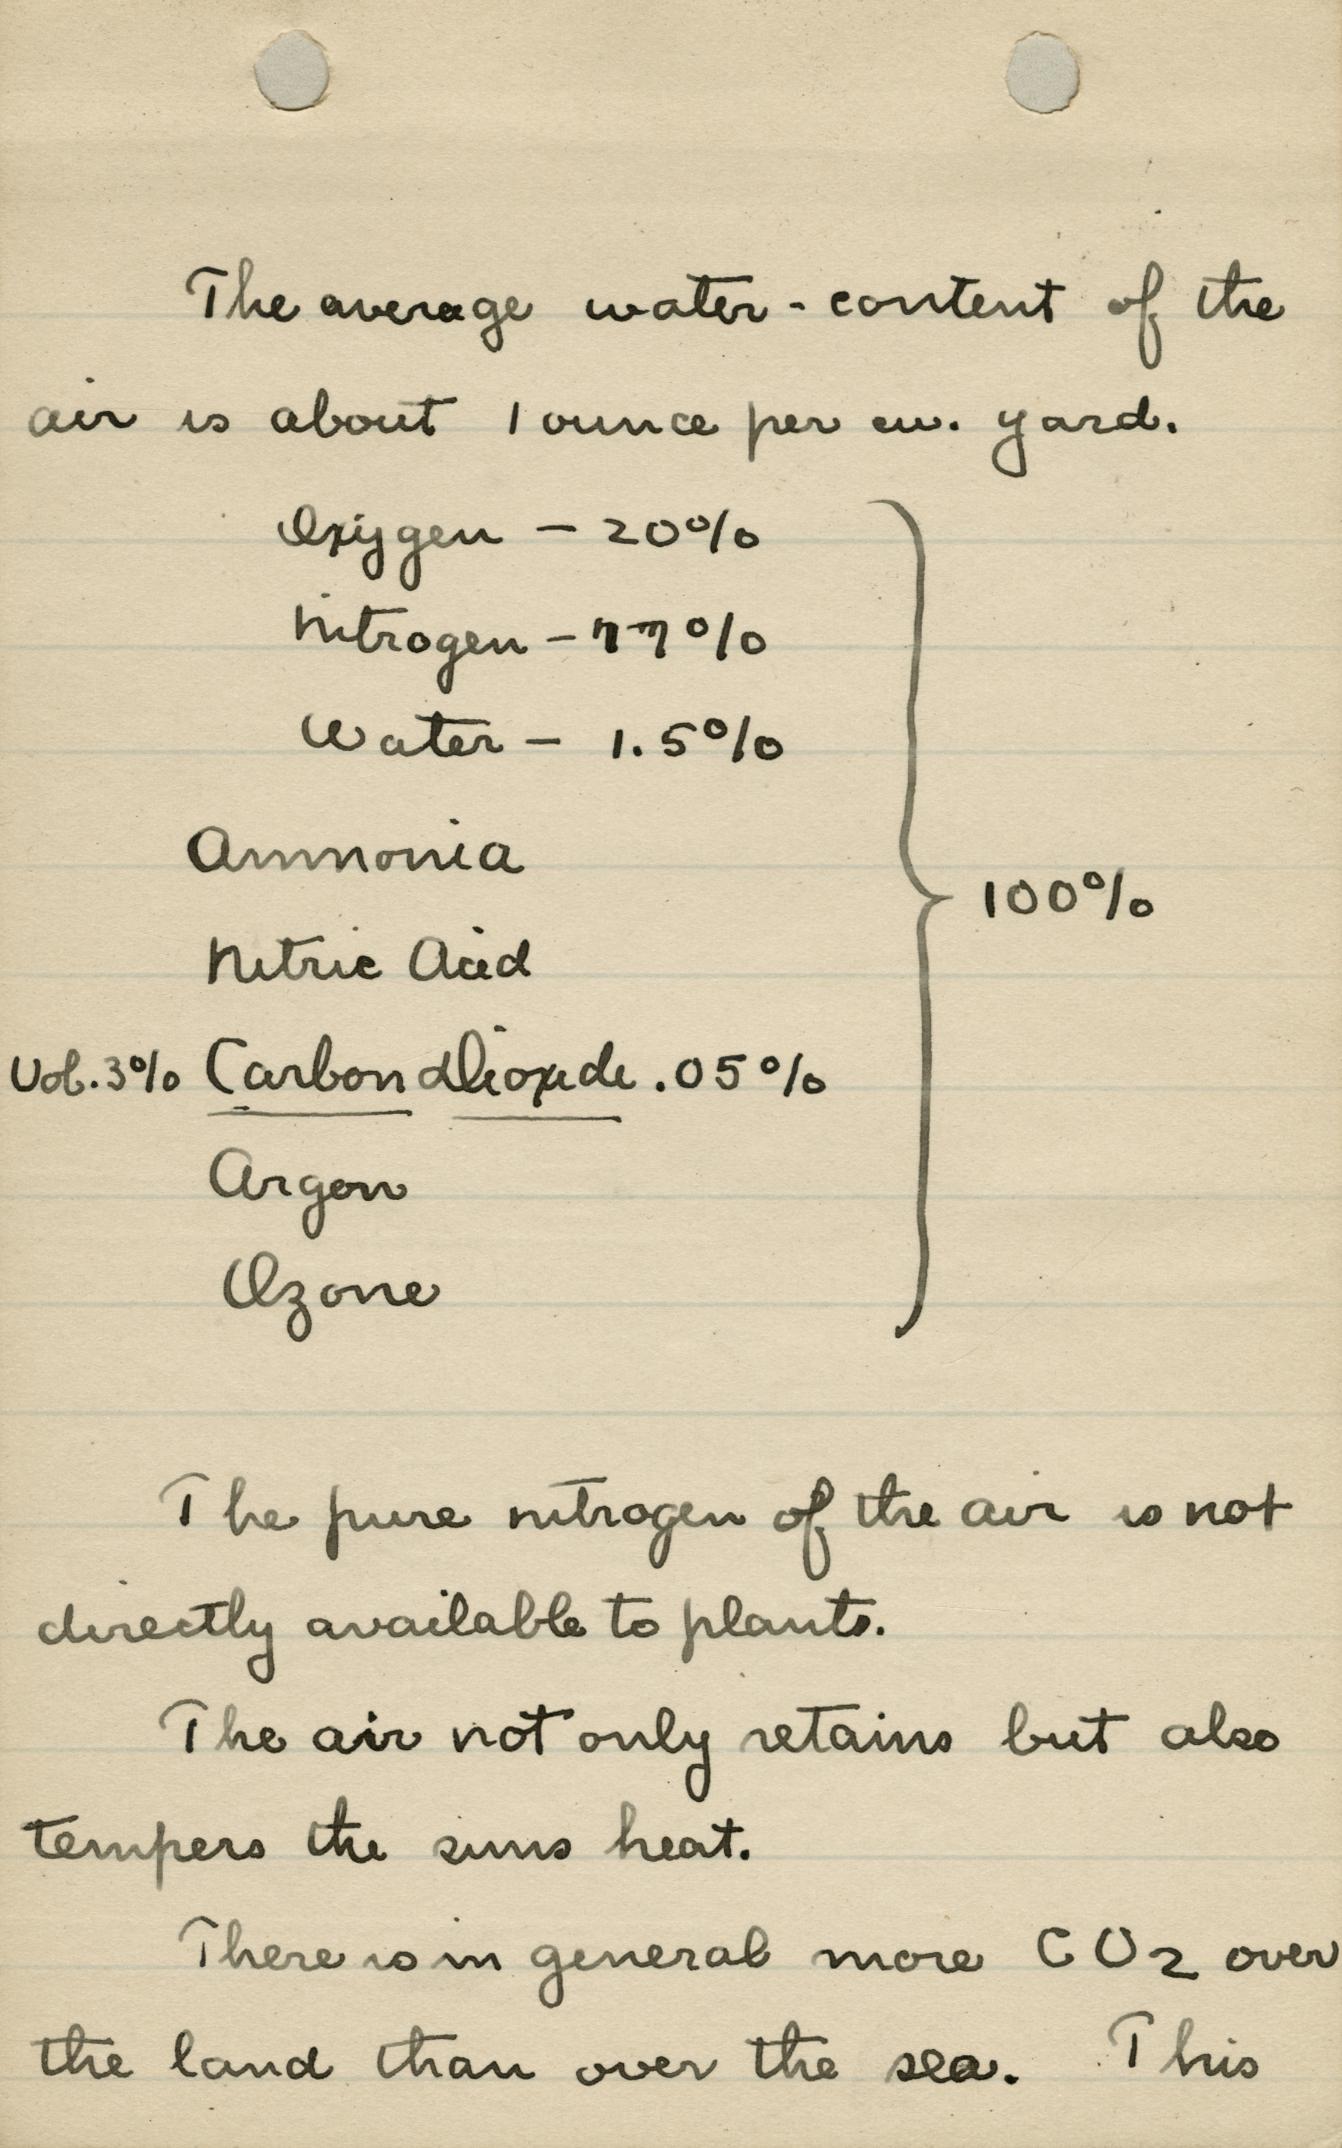 The average water-content of the
air is about 1 ounce per cu. yard.
Oxygen - 20%
Nitrogen - 77%
Water - 1.5%
Ammonia
100%
Nitric Acid
Vol. 3% Carbon dioxide .05%
Argon
Ozone
The pure nitrogen of the air is not
directly available to plants.
The air not only retains but also
tempers the suns heat.
There is in general more CO2 over
the land than over the sea. This